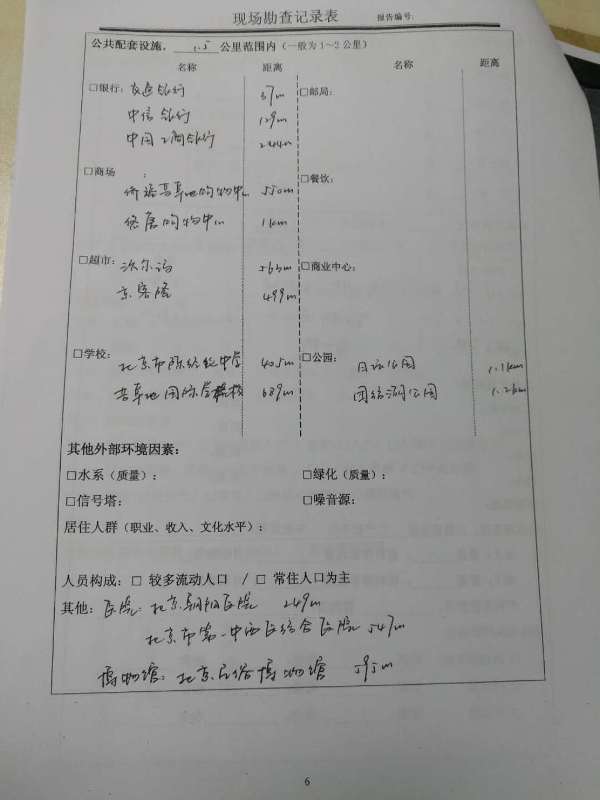 现场勘查记录表 报告编号:
公共配套设施, 1.5 公里范围内（一般为1~2公里）
名称 距离 名称 距离
□银行: 交通银行 37m □邮局:
中信银行 129m
中国工商银行 244m
□商场: □餐饮:
侨福芳草地购物中心 550m
悠唐购物中心 1km
□超市: 沃尔玛 563m □商业中心:
京客隆 499m
□学校: 北京市陈经纶中学 405m □公园: 日坛公园 1.1km
芳草地国际学校 689m 团结湖公园 1.2km
其他外部环境因素:
□水系（质量）: □绿化（质量）:
□信号塔: □噪音源:
居住人群（职业、收入、文化水平）:
人员构成: □ 较多流动人口 / □ 常住人口为主
其他: 医院: 北京朝阳医院 249m
北京市第一中西医结合医院 547m
博物馆: 北京民俗博物馆 595m
6